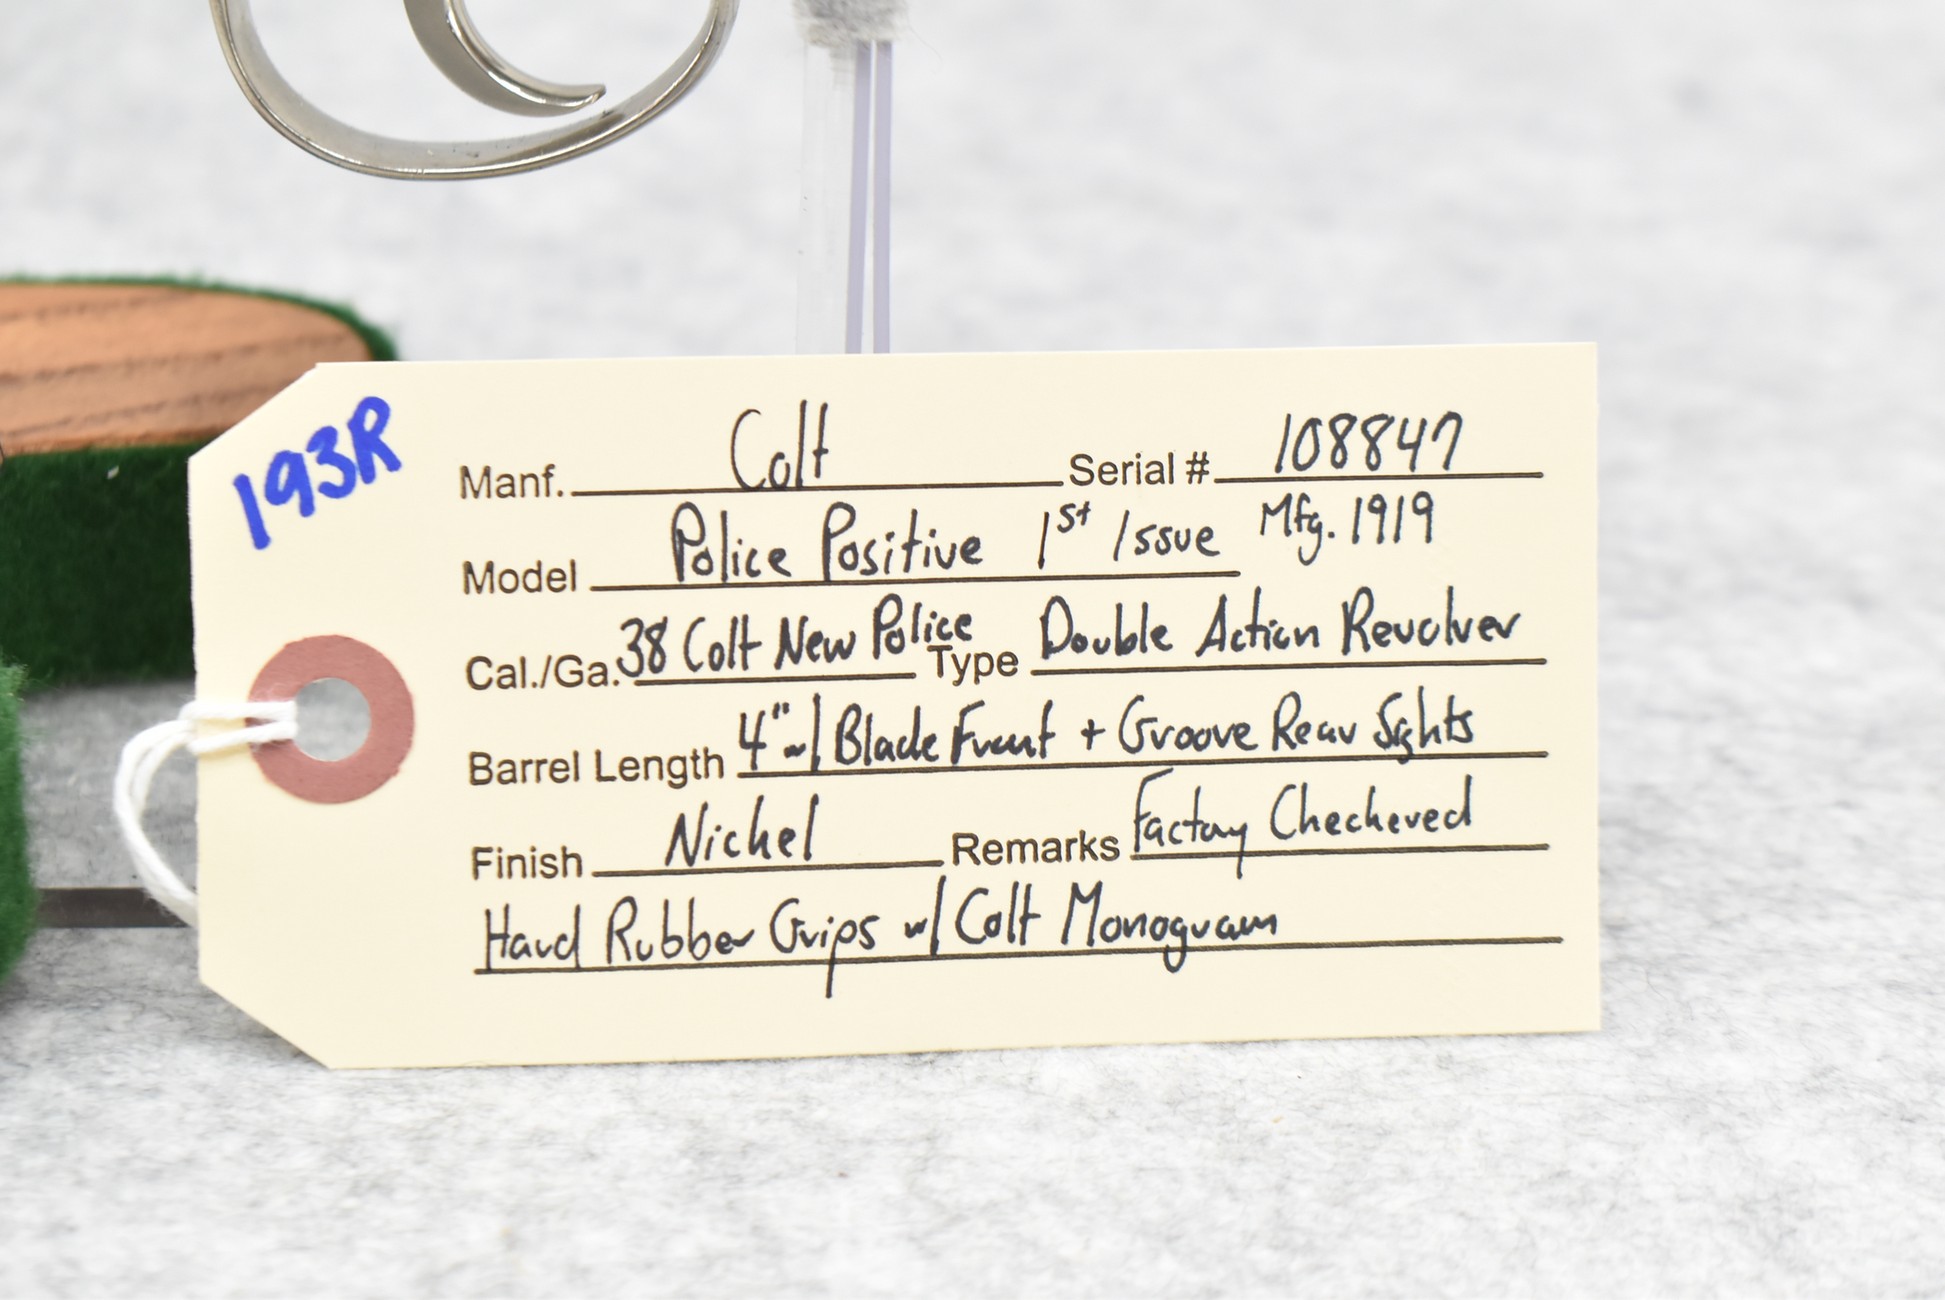 193R
Manf. Colt Serial # 108847
Model Police Positive 1st Issue Mfg. 1919
Cal./Ga. 38 Colt New Police Type Double Action Revolver
Barrel Length 4" w/ Blade Front + Groove Rear Sights
Finish Nickel Remarks Factory Checkered
Hard Rubber Grips w/ Colt Monogram